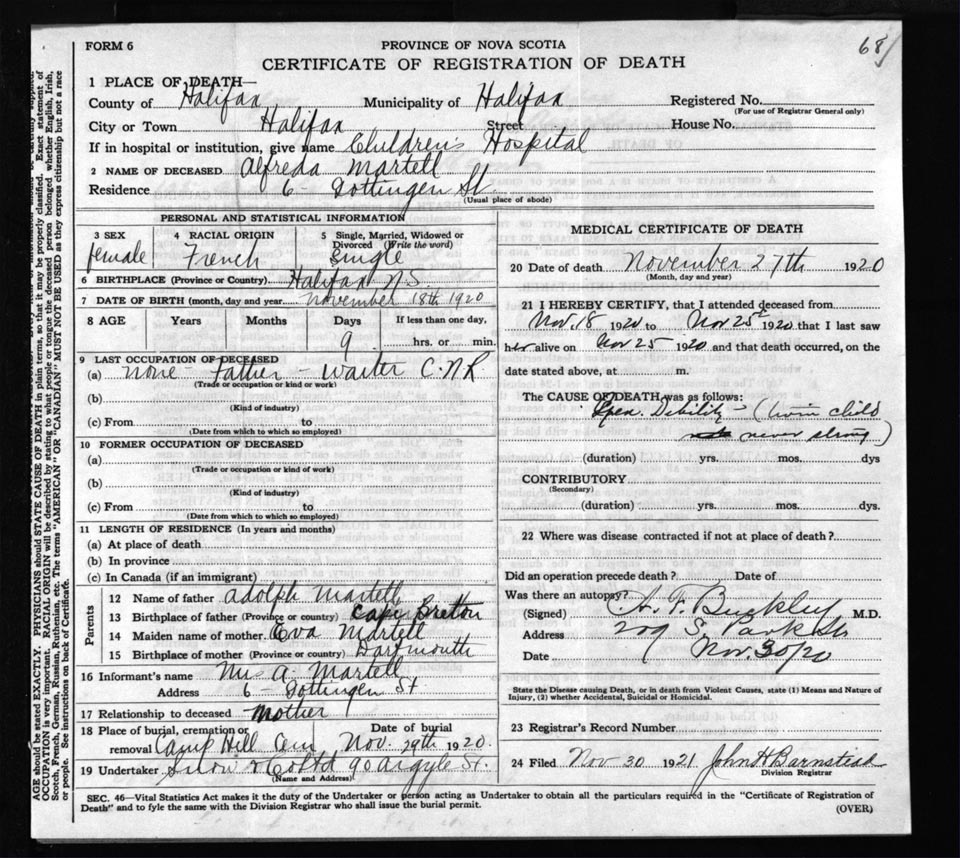 68
FORM 6
PROVINCE OF NOVA SCOTIA
CERTIFICATE OF REGISTRATION OF DEATH
1 PLACE OF DEATH—
County of Halifax Municipality of Halifax Registered No.
(For use of Registrar General only)
City or Town Halifax Street House No.
If in hospital or institution, give name Children's Hospital
2 NAME OF DECEASED Alfreda Martell
Residence 6 - Gottingen St.
(Usual place of abode)
PERSONAL AND STATISTICAL INFORMATION
3 SEX 4 RACIAL ORIGIN 5 Single, Married, Widowed or Divorced (Write the word)
female French Single
6 BIRTHPLACE (Province or Country) Halifax N.S.
7 DATE OF BIRTH (month, day and year November 18th 1920
8 AGE Years Months Days If less than one day,
9 hrs. or min.
9 LAST OCCUPATION OF DECEASED
(a) none - Father - Waiter C.N.R.
(Trade or occupation or kind or work)
(b)
(Kind of industry)
(c) From to
(Date from which to which so employed)
10 FORMER OCCUPATION OF DECEASED
(a)
(Trade or occupation or kind of work)
(b)
(Kind of industry)
(c) From to
(Date from which to which so employed)
11 LENGTH OF RESIDENCE (In years and months)
(a) At place of death
(b) In province
(c) In Canada (if an immigrant)
Parents
12 Name of father Adolph Martell
13 Birthplace of father (Province or country) Cape Breton
14 Maiden name of mother Eva Martell
15 Birthplace of mother (Province or country) Dartmouth
16 Informant's name Mrs A. Martell
Address 6 - Gottingen St
17 Relationship to deceased Mother
18 Place of burial, cremation or removal Camp Hill Cem Date of burial Nov. 29th 1920.
19 Undertaker Snow & Co Ltd 90 Argyle St.
(Name and Address)
MEDICAL CERTIFICATE OF DEATH
20 Date of death November 27th 1920
(Month, day and year)
21 I HEREBY CERTIFY, that I attended deceased from
Nov. 18 1920 to Nov 25th 1920 that I last saw
her alive on Nov 25 1920 and that death occurred, on the
date stated above, at m.
The CAUSE OF DEATH was as follows:
Debility - (twin child
never strong)
(duration) yrs. mos. dys
CONTRIBUTORY
(Secondary)
(duration) yrs. mos. dys.
22 Where was disease contracted if not at place of death?
Did an operation precede death? Date of
Was there an autopsy?
(Signed) A. F. Buckley M.D.
Address 209 S. Park St
Date Nov. 30/20
State the Disease causing Death, or in death from Violent Causes, state (1) Means and Nature of
Injury, (2) whether Accidental, Suicidal or Homicidal.
23 Registrar's Record Number
24 Filed Nov 30 1921 John H Barnstead
Division Registrar
SEC. 46—Vital Statistics Act makes it the duty of the Undertaker or person acting as Undertaker to obtain all the particulars required in the "Certificate of Registration of
Death" and to fyle the same with the Division Registrar who shall issue the burial permit.
(OVER)
AGE should be stated EXACTLY. PHYSICIANS should STATE CAUSE OF DEATH in plain terms, so that it may be properly classified. Exact statement of
OCCUPATION is very important. RACIAL ORIGIN will be described by stating to what people or tongue the deceased person belonged whether English, Irish,
Scotch, French, German, Russian, Ruthenian, etc. The terms "AMERICAN" OR "CANADIAN" MUST NOT BE USED as they express citizenship but not a race
or people. See instructions on back of Certificate.